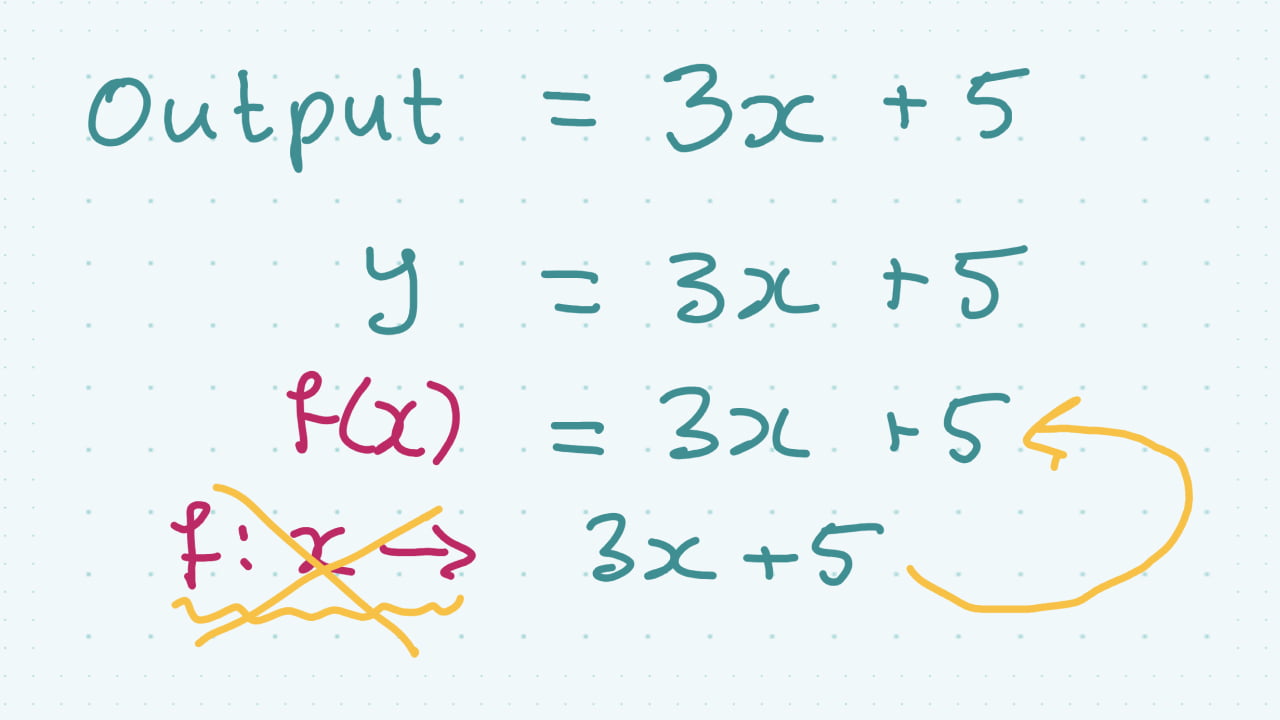 Output = 3x + 5
y = 3x + 5
f(x) = 3x + 5
f : x → 3x + 5